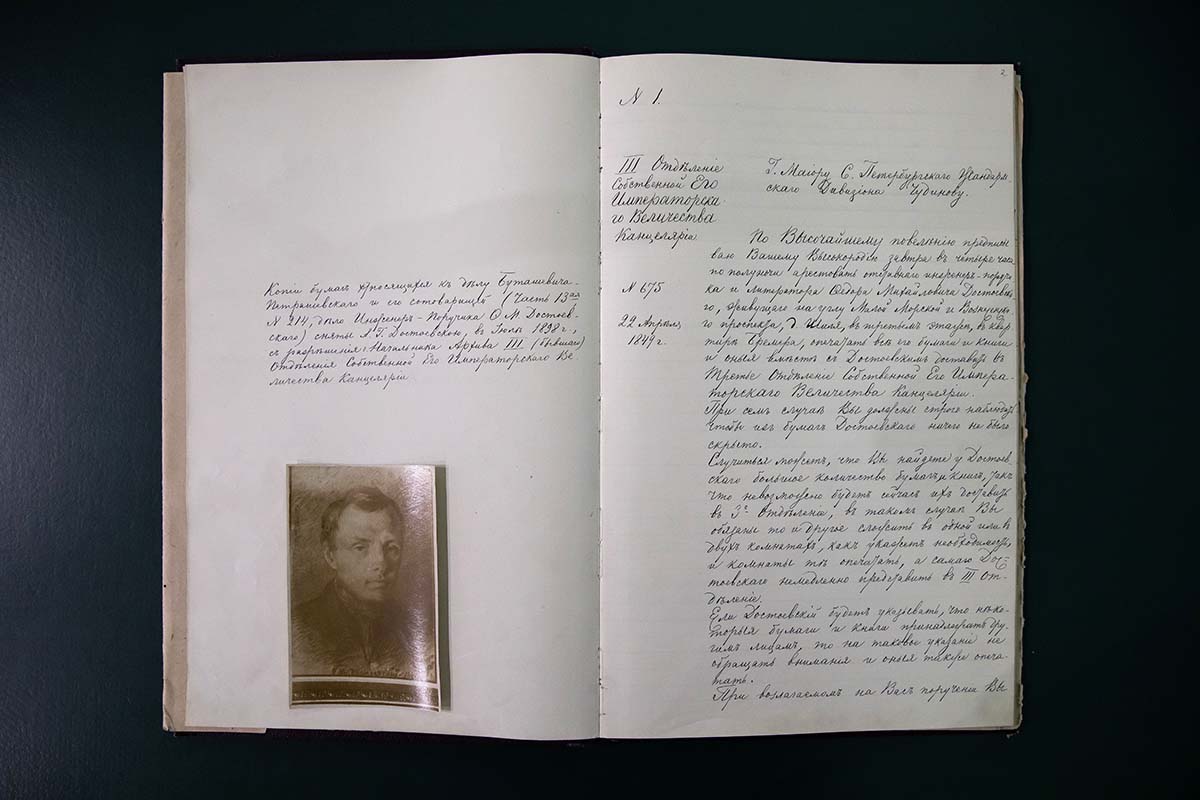 Копіи бумагъ относящихся къ дѣлу Буташевича-
Петрашевскаго и его сотоварищъ (Часть 13ая
N 214, дѣло Инженеръ-Поручика Ѳ. М. Достоев-
скаго) сняты А. Г. Достоевскою, въ Іюлѣ 1898 г.,
съ разрѣшенія: Начальника Архива III (бывшаго)
Отдѣленія Собственной Его Императорскаго Ве-
личества Канцеляріи
2
N 1.
III Отдѣленіе
Собственной Его
Императорска
го Величества
Канцеляріи
N 675
22 Апрѣля
1849 г.
Г. Маіору С. Петербургскаго Жандарм-
скаго Дивизіона Чудинову.
По Высочайшему повелѣнію предписы
ваю Вашему Высокородію завтра въ четыре часа
по полуночи арестовать отставнаго инженеръ-поручи
ка и литератора Ѳедора Михайловича Достоевска
го, живущаго на углу Малой Морской и Вознесенска
го проспекта, д. Шиля, въ третьемъ этажѣ, въ квар
тирѣ Бремера, опечатать всѣ его бумаги и книги
и оныя вмѣстѣ съ Достоевскимъ доставить въ
Третье Отдѣленіе Собственной Его Импера-
торскаго Величества Канцеляріи.
При семъ случаѣ Вы должны строго наблюдать
чтобы изъ бумагъ Достоевскаго ничего не было
скрыто.
Случиться можетъ, что Вы найдете у Достоев
скаго большое количество бумагъ и книгъ, такъ
что невозможно будетъ сейчасъ ихъ доставить
въ 3е Отдѣленіе, въ такомъ случаѣ Вы
обязаны то и другое сложить въ одной или въ
двухъ комнатахъ, какъ укажетъ необходимость,
и комнаты тѣ опечатать, а самаго Дос-
тоевскаго немедленно представить въ III От-
дѣленіе.
Если Достоевскій будетъ указывать, что нѣко-
торыя бумаги и книги принадлежатъ дру-
гимъ лицамъ, то на таковое указаніе не
обращать вниманія и оныя также опеча-
тать.
При возлагаемомъ на Васъ порученіи Вы